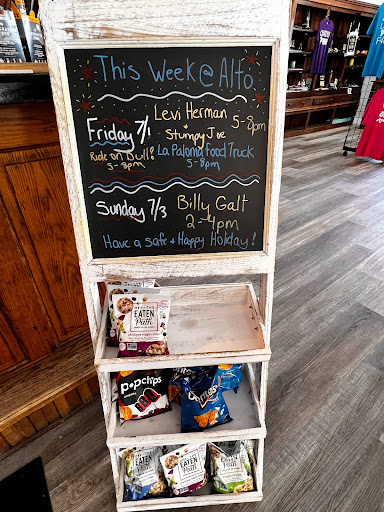 This Week @ Alto
Levi Herman
+
Stumpy Joe
5-8pm
Friday 7/1
Ride on Bull!
5-8pm
La Paloma Food Truck
5-8pm
Sunday 7/3
Billy Galt
2-4pm
Have a safe + Happy Holiday!
EATEN
Path
EATEN
Path
popchips
Doritos
EATEN
Path
EATEN
Path